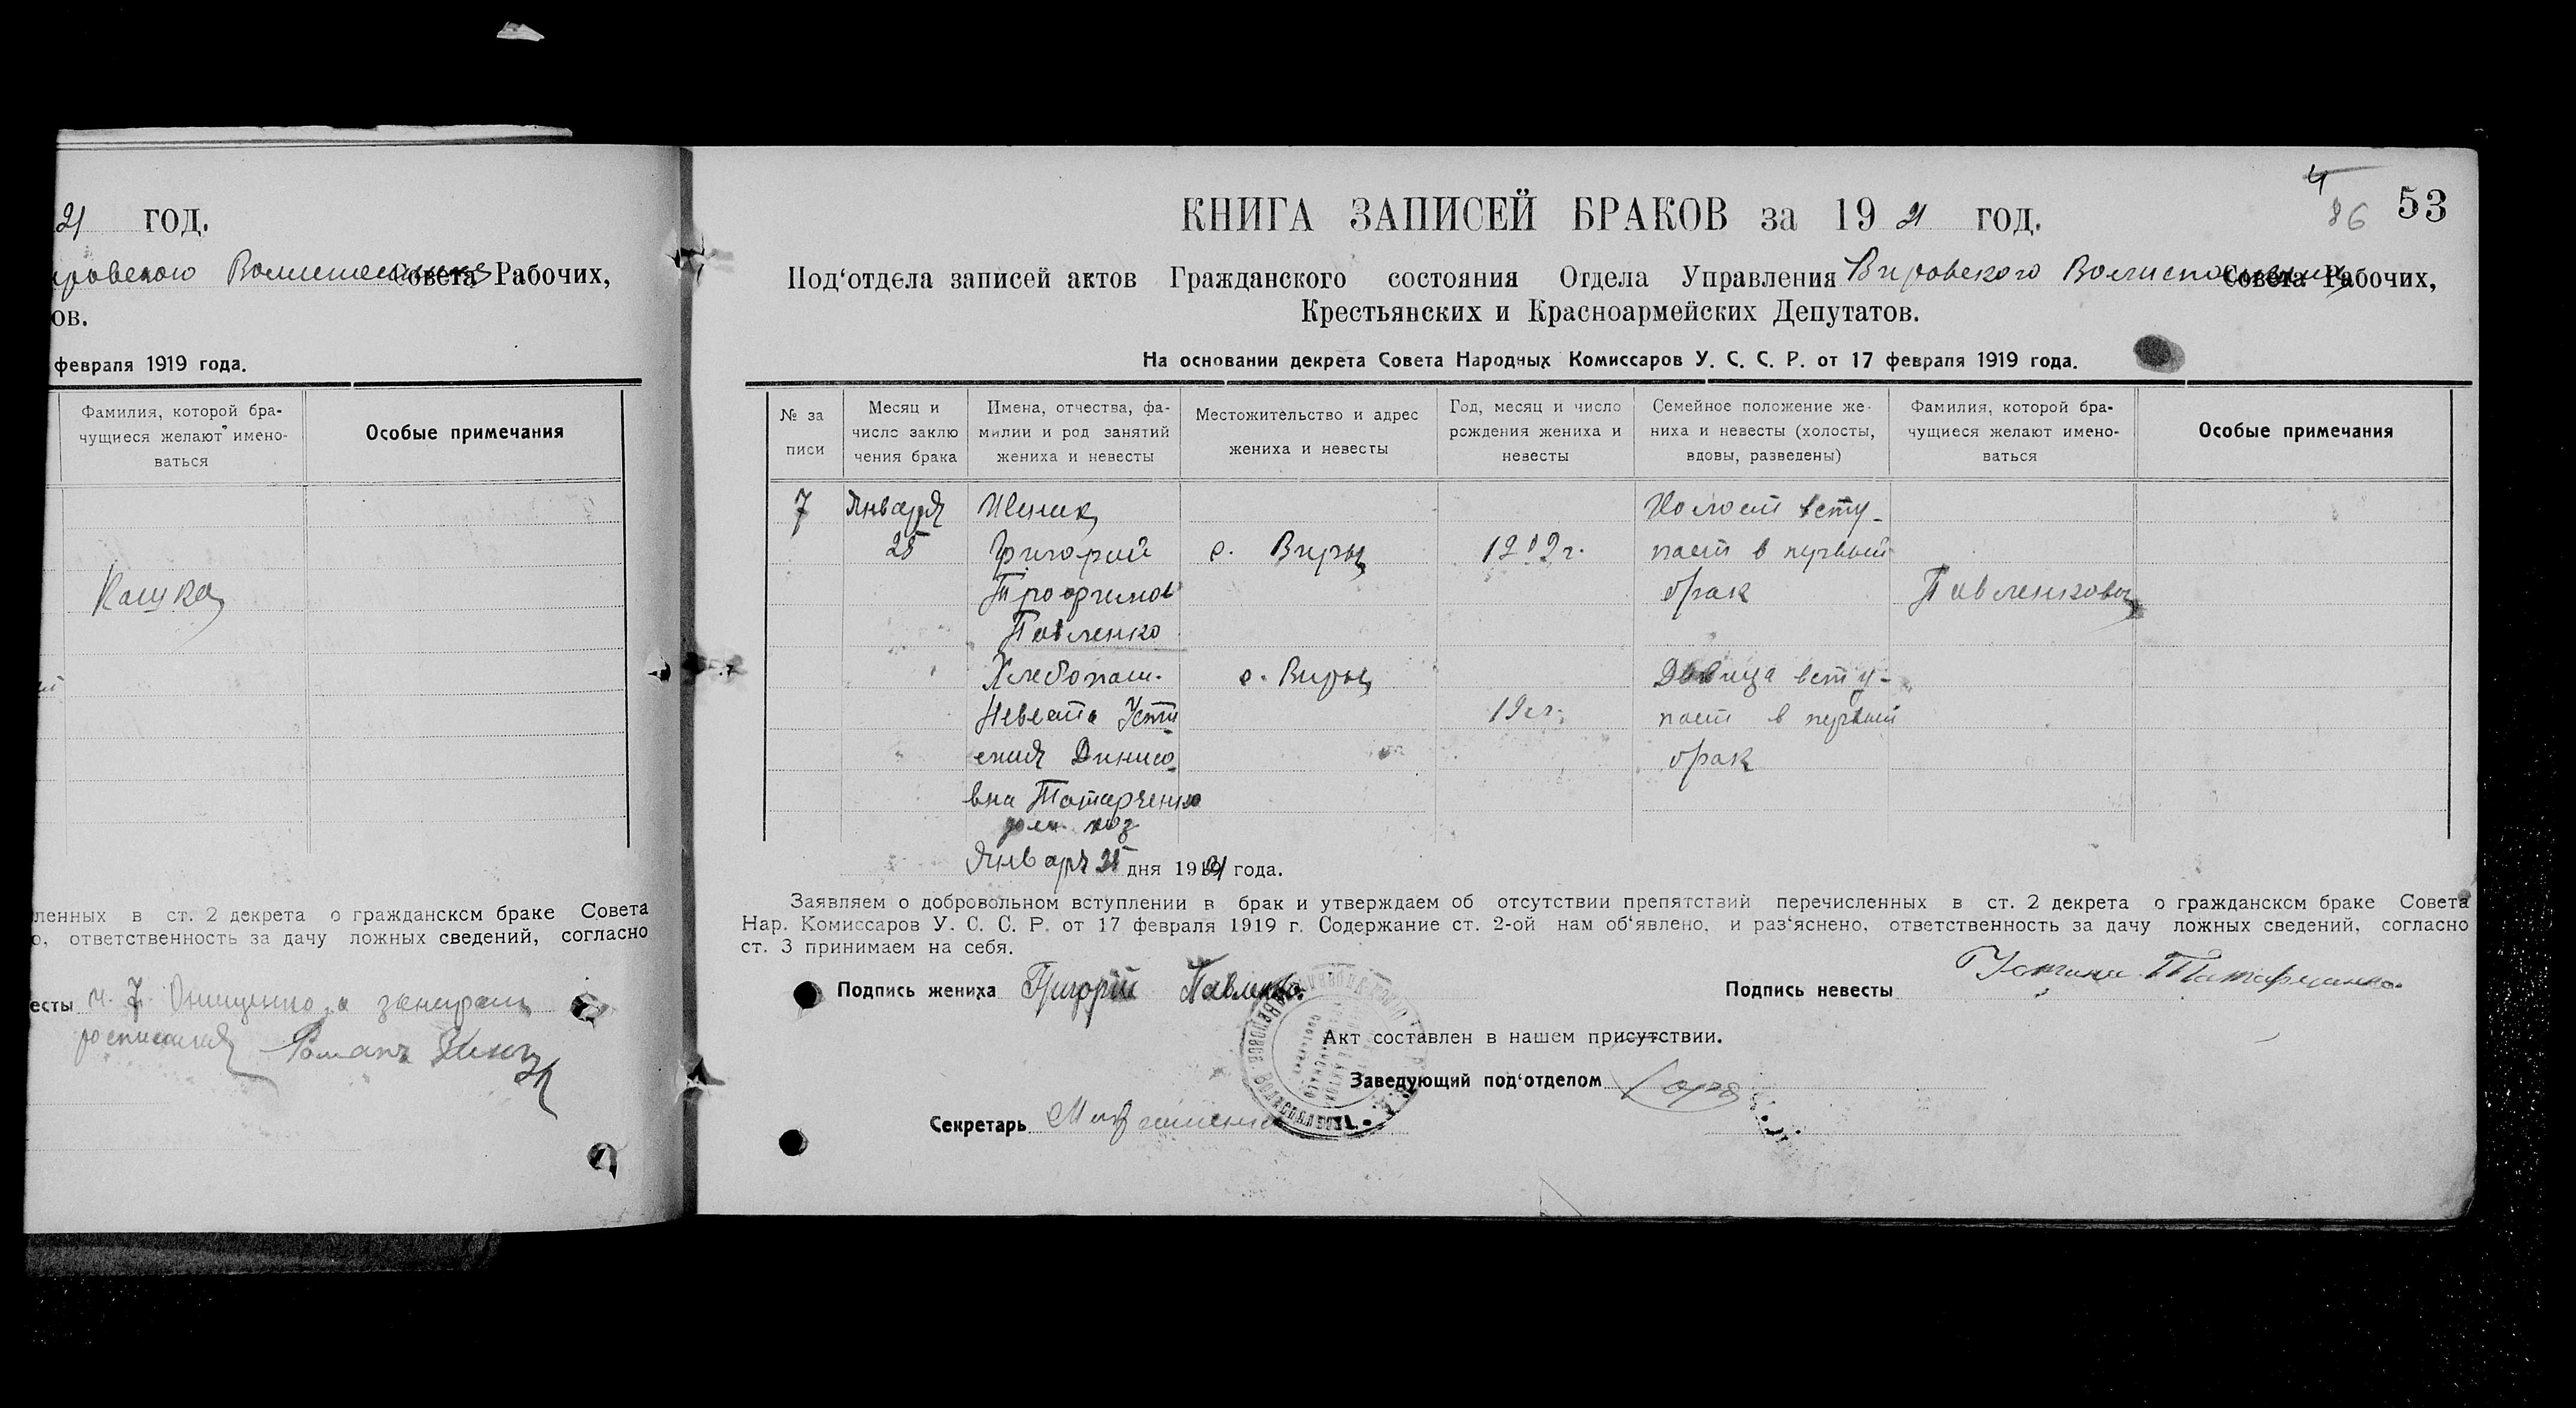 21 ГОД.
Совета Рабочих,
ов.
февраля 1919 года.
Фамилия, которой бра-
чущиеся желают имено-
ваться
Особые примечания
Кашка
ленных в ст. 2 декрета о гражданском браке Совета
о, ответственность за дачу ложных сведений, согласно
есты
Романъ
4
86
53
КНИГА ЗАПИСЕЙ БРАКОВ за 1921 год.
Под‘отдела записей актов Гражданского состояния Отдела Управления Вировского Волисполкома Совета Рабочих,
Крестьянских и Красноармейских Депутатов.
На основании декрета Совета Народных Комиссаров У. С. С. Р. от 17 февраля 1919 года.
№ за
писи
Месяц и
число заклю
чения брака
Имена, отчества, фа-
милии и род занятий
жениха и невесты
Местожительство и адрес
жениха и невесты
Год, месяц и число
рождения жениха и
невесты
Семейное положение же-
ниха и невесты (холосты,
вдовы, разведены)
Фамилия, которой бра-
чущиеся желают имено-
ваться
Особые примечания
7 Января Женик Холост всту-
25 Григорий с. Виры паст в первый
Трофимов брак Павленковы
Павленко
Хлебопаш. с. Виры Девица всту-
Невеста Усти паст в первый
ения Динисо брак
вна Татарченко
дом. хоз
Январь 25 дня 1921 года.
Заявляем о добровольном вступлении в брак и утверждаем об отсутствии препятствий перечисленных в ст. 2 декрета о гражданском браке Совета
Нар. Комиссаров У. С. С. Р. от 17 февраля 1919 г. Содержание ст. 2-ой нам об‘явлено, и раз‘яснено, ответственность за дачу ложных сведений, согласно
ст. 3 принимаем на себя.
Подпись жениха Григорій Павленко.
Подпись невесты Устина Татарченко.
Акт составлен в нашем присутствии.
Заведующий под‘отделом
Секретарь